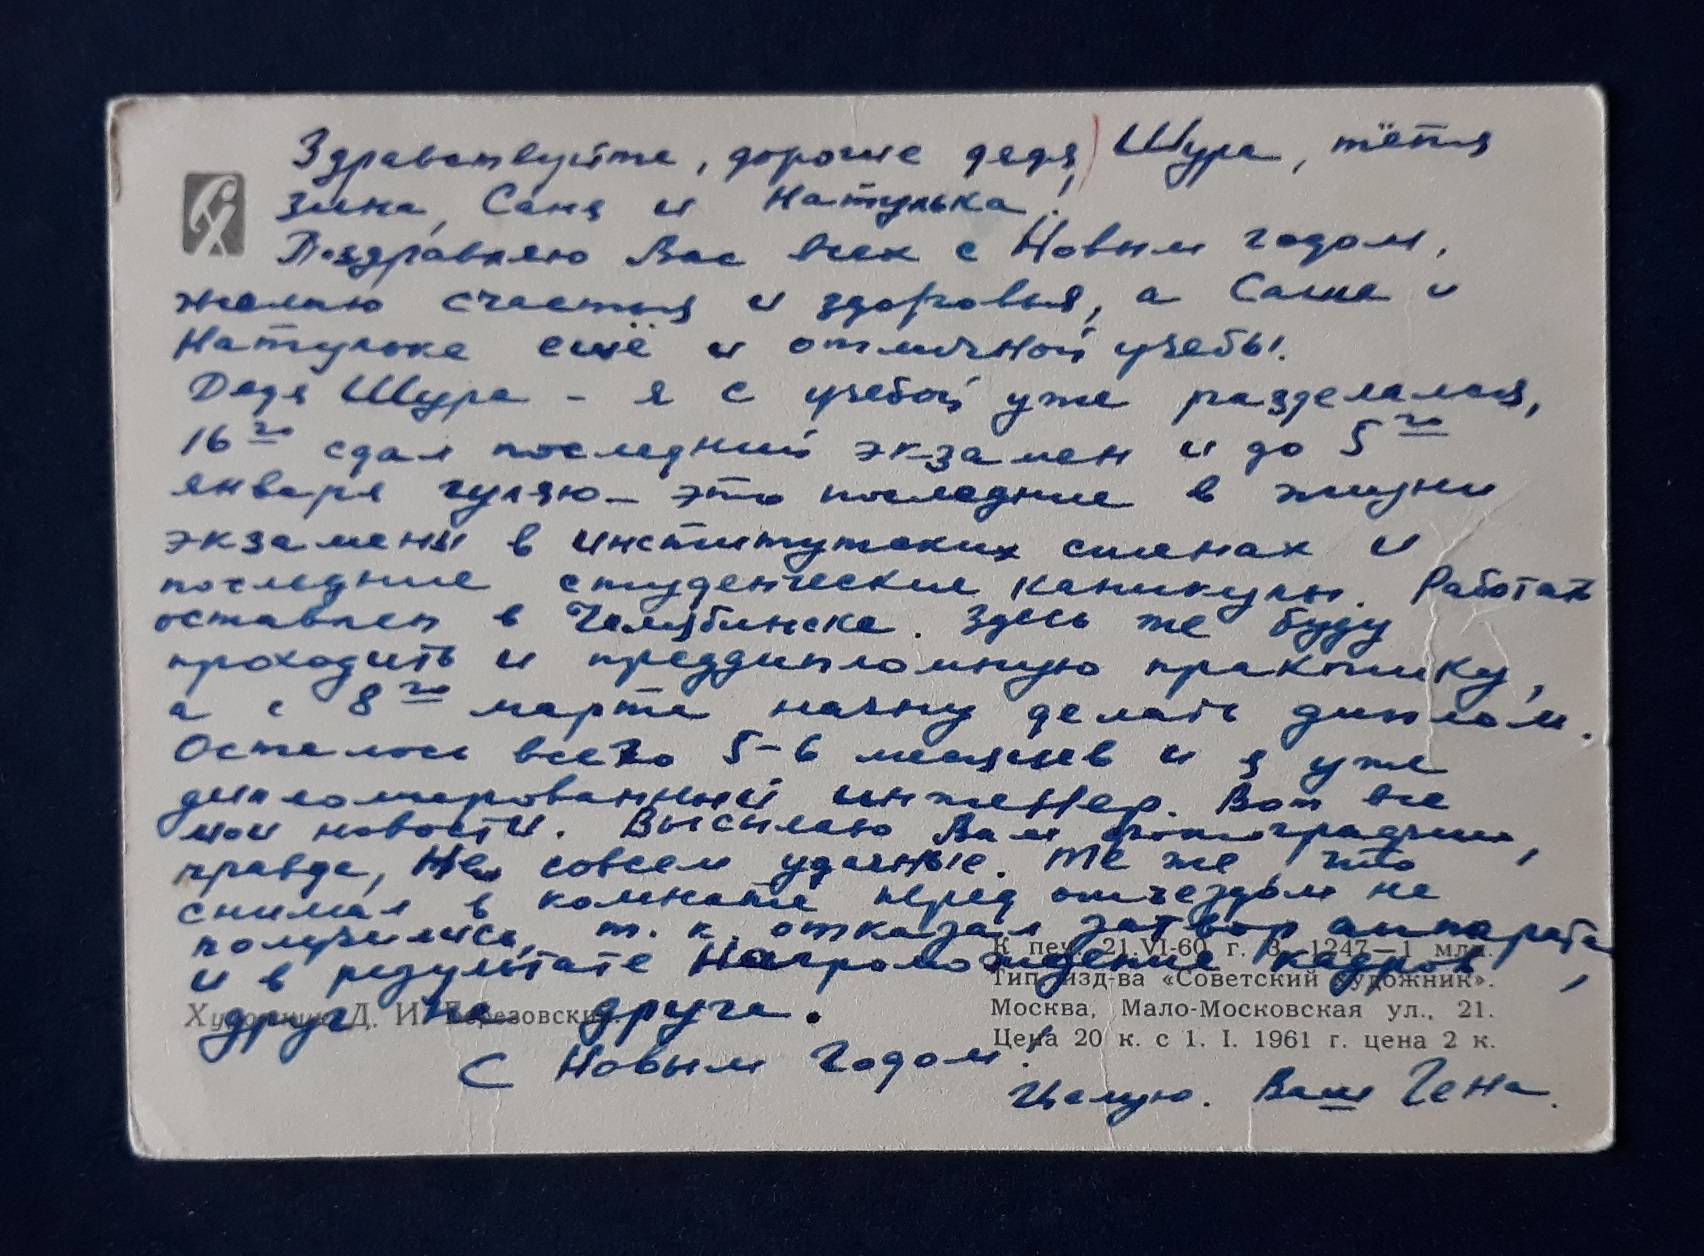 Здравствуйте, дорогие дядя, Шура, тётя
Зина, Саня и Натулька!
Поздравляю Вас всех с Новым годом,
желаю счастья и здоровья, а Саше и
Натульке ещё и отличной учебы.
Дядя Шура – я с учебой уже разделался,
16го сдал последний экзамен и до 5го
января гуляю – это последние в жизни
экзамены в институтских стенах и
последние студенческие каникулы. Работать
оставлен в Челябинске. Здесь же буду
проходить и преддипломную практику,
а с 8го марта начну делать диплом.
Осталось всего 5-6 месяцев и я уже
дипломированный инженер. Вот все
мои новости. Высылаю Вам фотографии,
правда, не совсем удачные. Те же что
снимал в комнате перед отъездом не
получились, т. к. отказал затвор аппарата
и в результате нагромождение кадров
друг на друга.
С Новым Годом!
Целую. Ваш Гена.
Художник Д. И. Березовский
К печ. 21.VI-60 г. З. 1247—1 млн.
Тип. изд-ва «Советский художник».
Москва, Мало-Московская ул., 21.
Цена 20 к. с 1. I. 1961 г. цена 2 к.